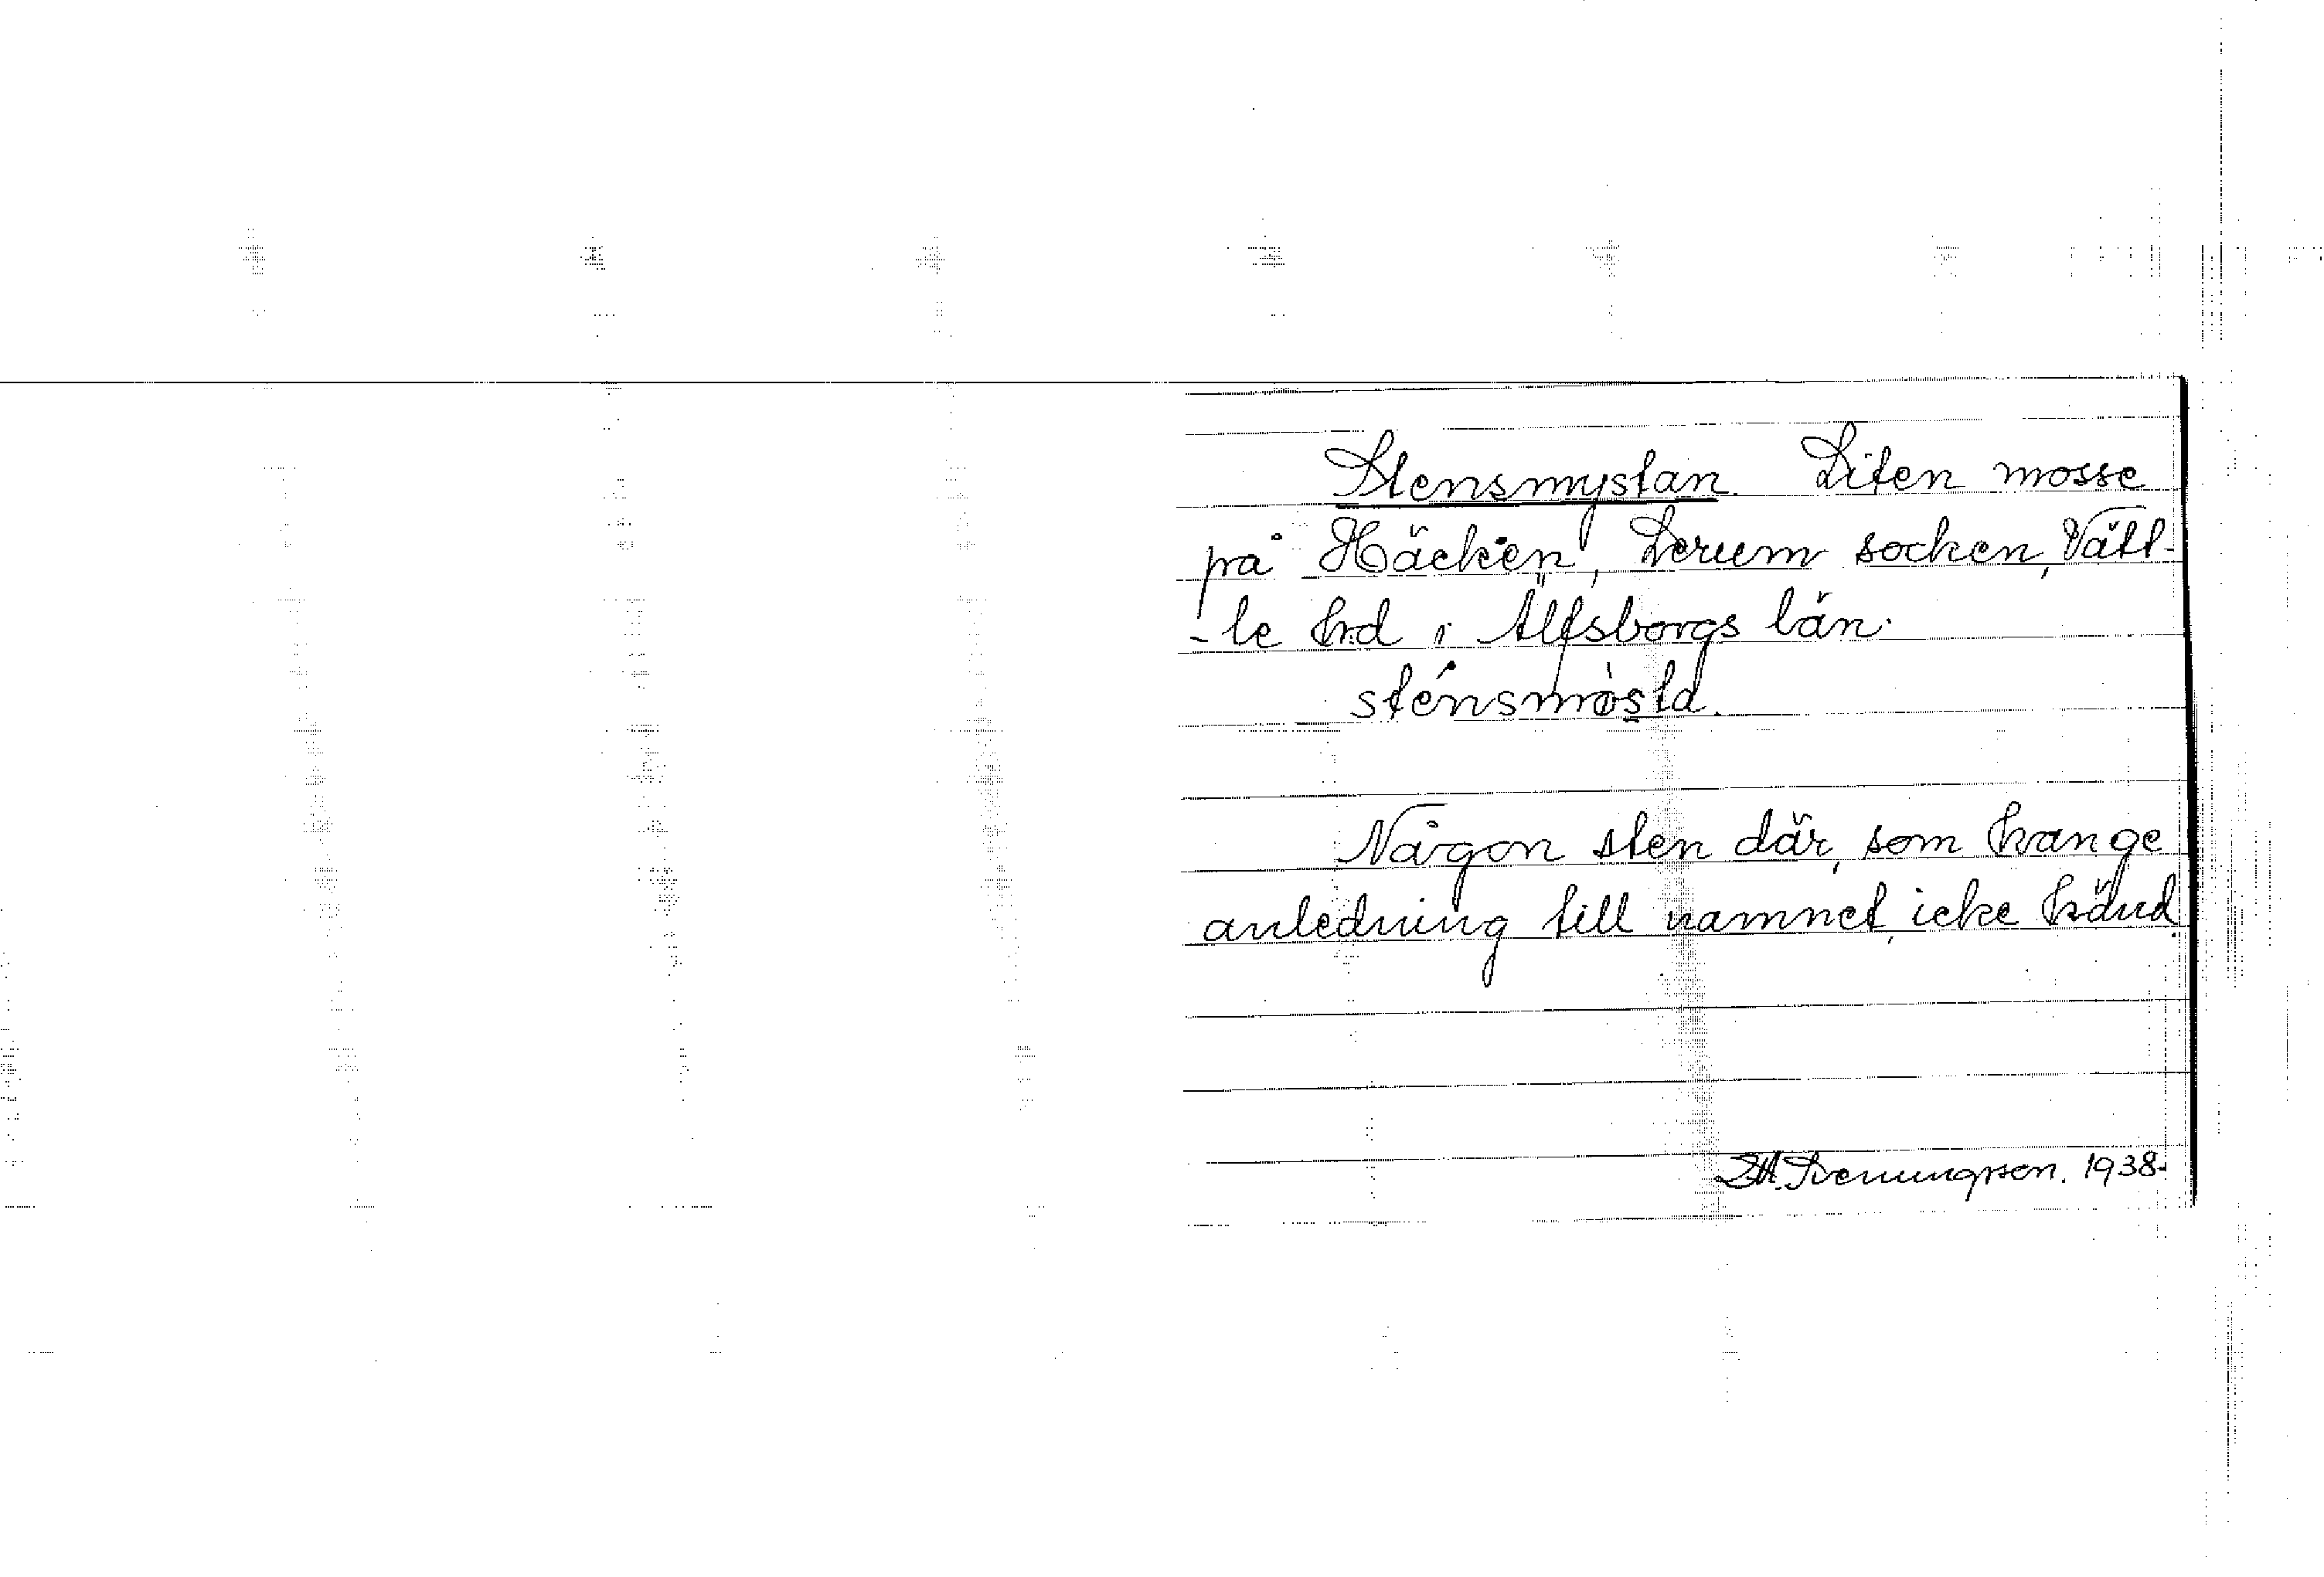 Stensmystan. Liten mosse
på Häcken, Lerum socken, Vätt-
-le hrd i Älfsborgs län.
sténsmøsta.
Någon sten där, som kan ge
anledning till namnet, icke känd.
1938.